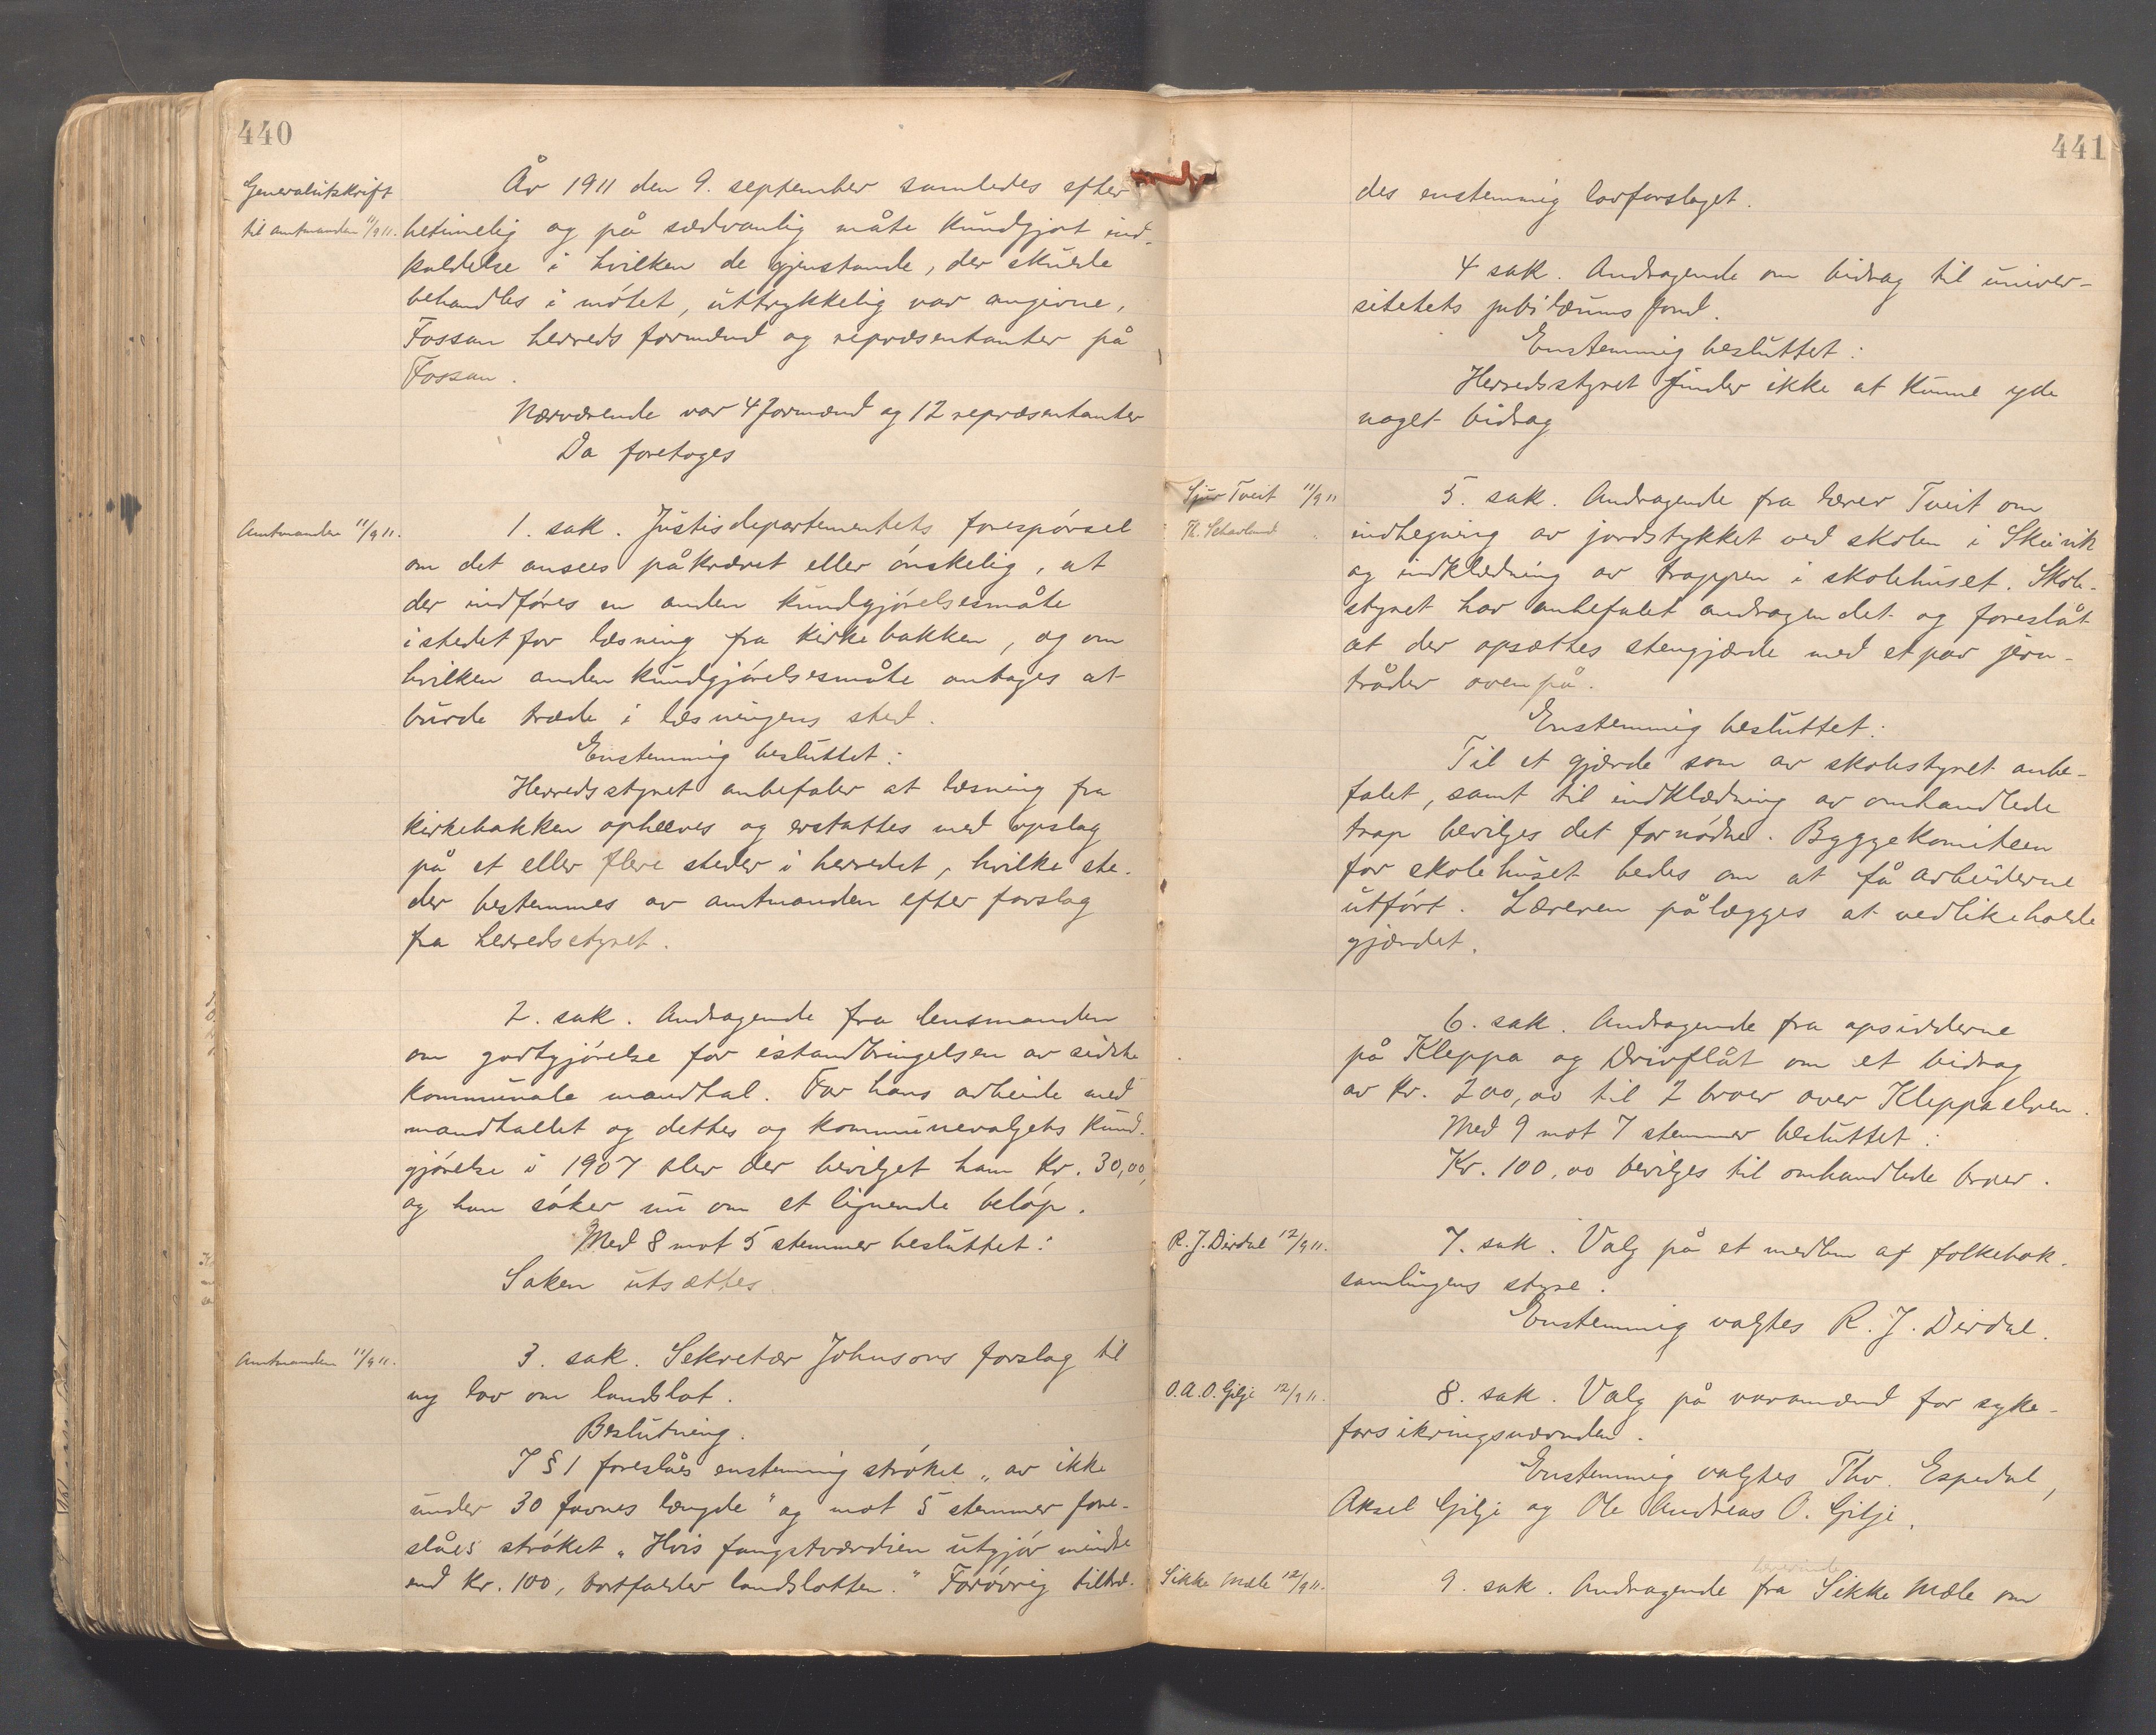 440
Generalutskrift
til amtmanden 11/9 11.
År 1911 den 9. september samledes efter
betimelig og på sedvanlig måte kundgjort ind-
kaldelse i hvilken de gjenstande, der skulde
behandles i mötet, uttrykkelig var angivne,
Fossan herreds formænd og repræsentanter på
Fossan.
Nærværende var 4 formænd og 12 repræsentanter
Da foretoges
Amtmanden 11/9 11.
1. sak. Justisdepartementets forespörsel
om det ansees påkrævet eller önskelig, at
der indföres en anden kundgjörelsesmåte
istedetfor læsning fra kirkebakken, og om
hvilken anden kundgjörelsesmåte antages at
burde træde i læsningens sted.
Enstemmig besluttet:
Herredsstyret anbefaler at læsning fra
kirkebakken ophæves og erstattes med opslag
på et eller flere steder i herredet, hvilke ste-
der bestemmes av amtmanden efter forslag
fra herredsstyret.
2. sak. Andragende fra lensmanden
om godtgjörelse for istandbringelsen av sidste
kommunale mandtal. For hans arbeide med
mandtallet og dettes og kommunevalgets kund-
gjörelse i 1907 blev der bevilget ham kr. 30,00,
og han söker nu om et lignende belöp.
Med 8 mot 5 stemmer besluttet:
Saken utsættes.
Amtmanden 11/9 11.
3. sak. Sekretær Johnsons forslag til
ny lov om landslot.
Beslutning.
I § 1 foreslåes enstemmig ströket „av ikke
under 30 favnes længde" og mot 5 stemmer fore-
slåes ströket „Hvis fangstværdien utgjör mindre
end kr. 100, bortfalder landslotten." Forövrig tiltræ-
441
des enstemmig lovforslaget.
4 sak. Andragende om bidrag til univer-
sitetets jubilæumsfond.
Enstemmig besluttet:
Herredsstyret finder ikke at kunne yde
noget bidrag
Sjur Tveit 11/9 11
5. sak. Andragende fra lærer Tveit om
indhegning av jordstykket ved skolen i
og indklædning av trappen i skolehuset. Skole-
styret har anbefalet andragendet og foreslåt
at der opsættes stengjærde med et par jern-
tråder ovenpå.
Enstemmig besluttet:
Til et gjærde som av skolestyret anbe-
falet, samt til indklædning av omhandlede
trap bevilges det fornödne. Byggekomiteen
for skolehuset bedes om at få arbeiderne
utfört. Læreren pålægges at vedlikeholde
gjærdet.
6. sak. Andragende fra opsidderne
på Kleppa og Drivflåt om et bidrag
av kr. 200,00 til 2 broer over Kleppaelven.
Med 9 mot 7 stemmer besluttet:
Kr. 100,00 bevilges til omhandlede broer.
R. J. Dirdal 12/9 11.
7. sak. Valg på et medlem af folkebok-
samlingens styre.
Enstemmig valgtes R. J. Dirdal.
O. A. O. Gilje 12/9 11.
8. sak. Valg på varamænd for syke-
forsikringsnævnden.
Enstemmig valgtes Thv. Espedal,
Aksel Gilje og Ole Andreas O. Gilje.
Sikke Mæle 12/9 11.
9. sak. Andragende fra Sikke Mæle om